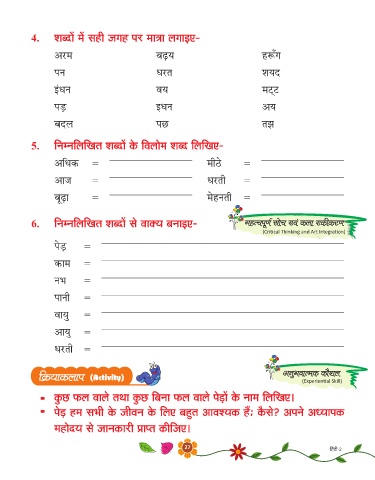 4. शब्दों में सही जगह पर मात्रा लगाइए-
अरम बढ़य हरूँग
पन धरत शयद
इंधन वय मट्ट
पड़ इधन अय
बदल पछ तझ
5. निम्नलिखित शब्दों के विलोम शब्द लिखिए-
अधिक = मीठे =
आज = धरती =
बूढ़ा = मेहनती =
6. निम्नलिखित शब्दों से वाक्य बनाइए-
महत्वपूर्ण सोच एवं कला एकीकरण
(Critical Thinking and Art Integration)
पेड़ =
काम =
नभ =
पानी =
वायु =
आयु =
धरती =
क्रियाकलाप (Activity)
अनुभवात्मक कौशल
(Experiential Skill)
कुछ फल वाले तथा कुछ बिना फल वाले पेड़ों के नाम लिखिए।
पेड़ हम सभी के जीवन के लिए बहुत आवश्यक हैं; कैसे? अपने अध्यापक
महोदय से जानकारी प्राप्त कीजिए।
हिंदी-2